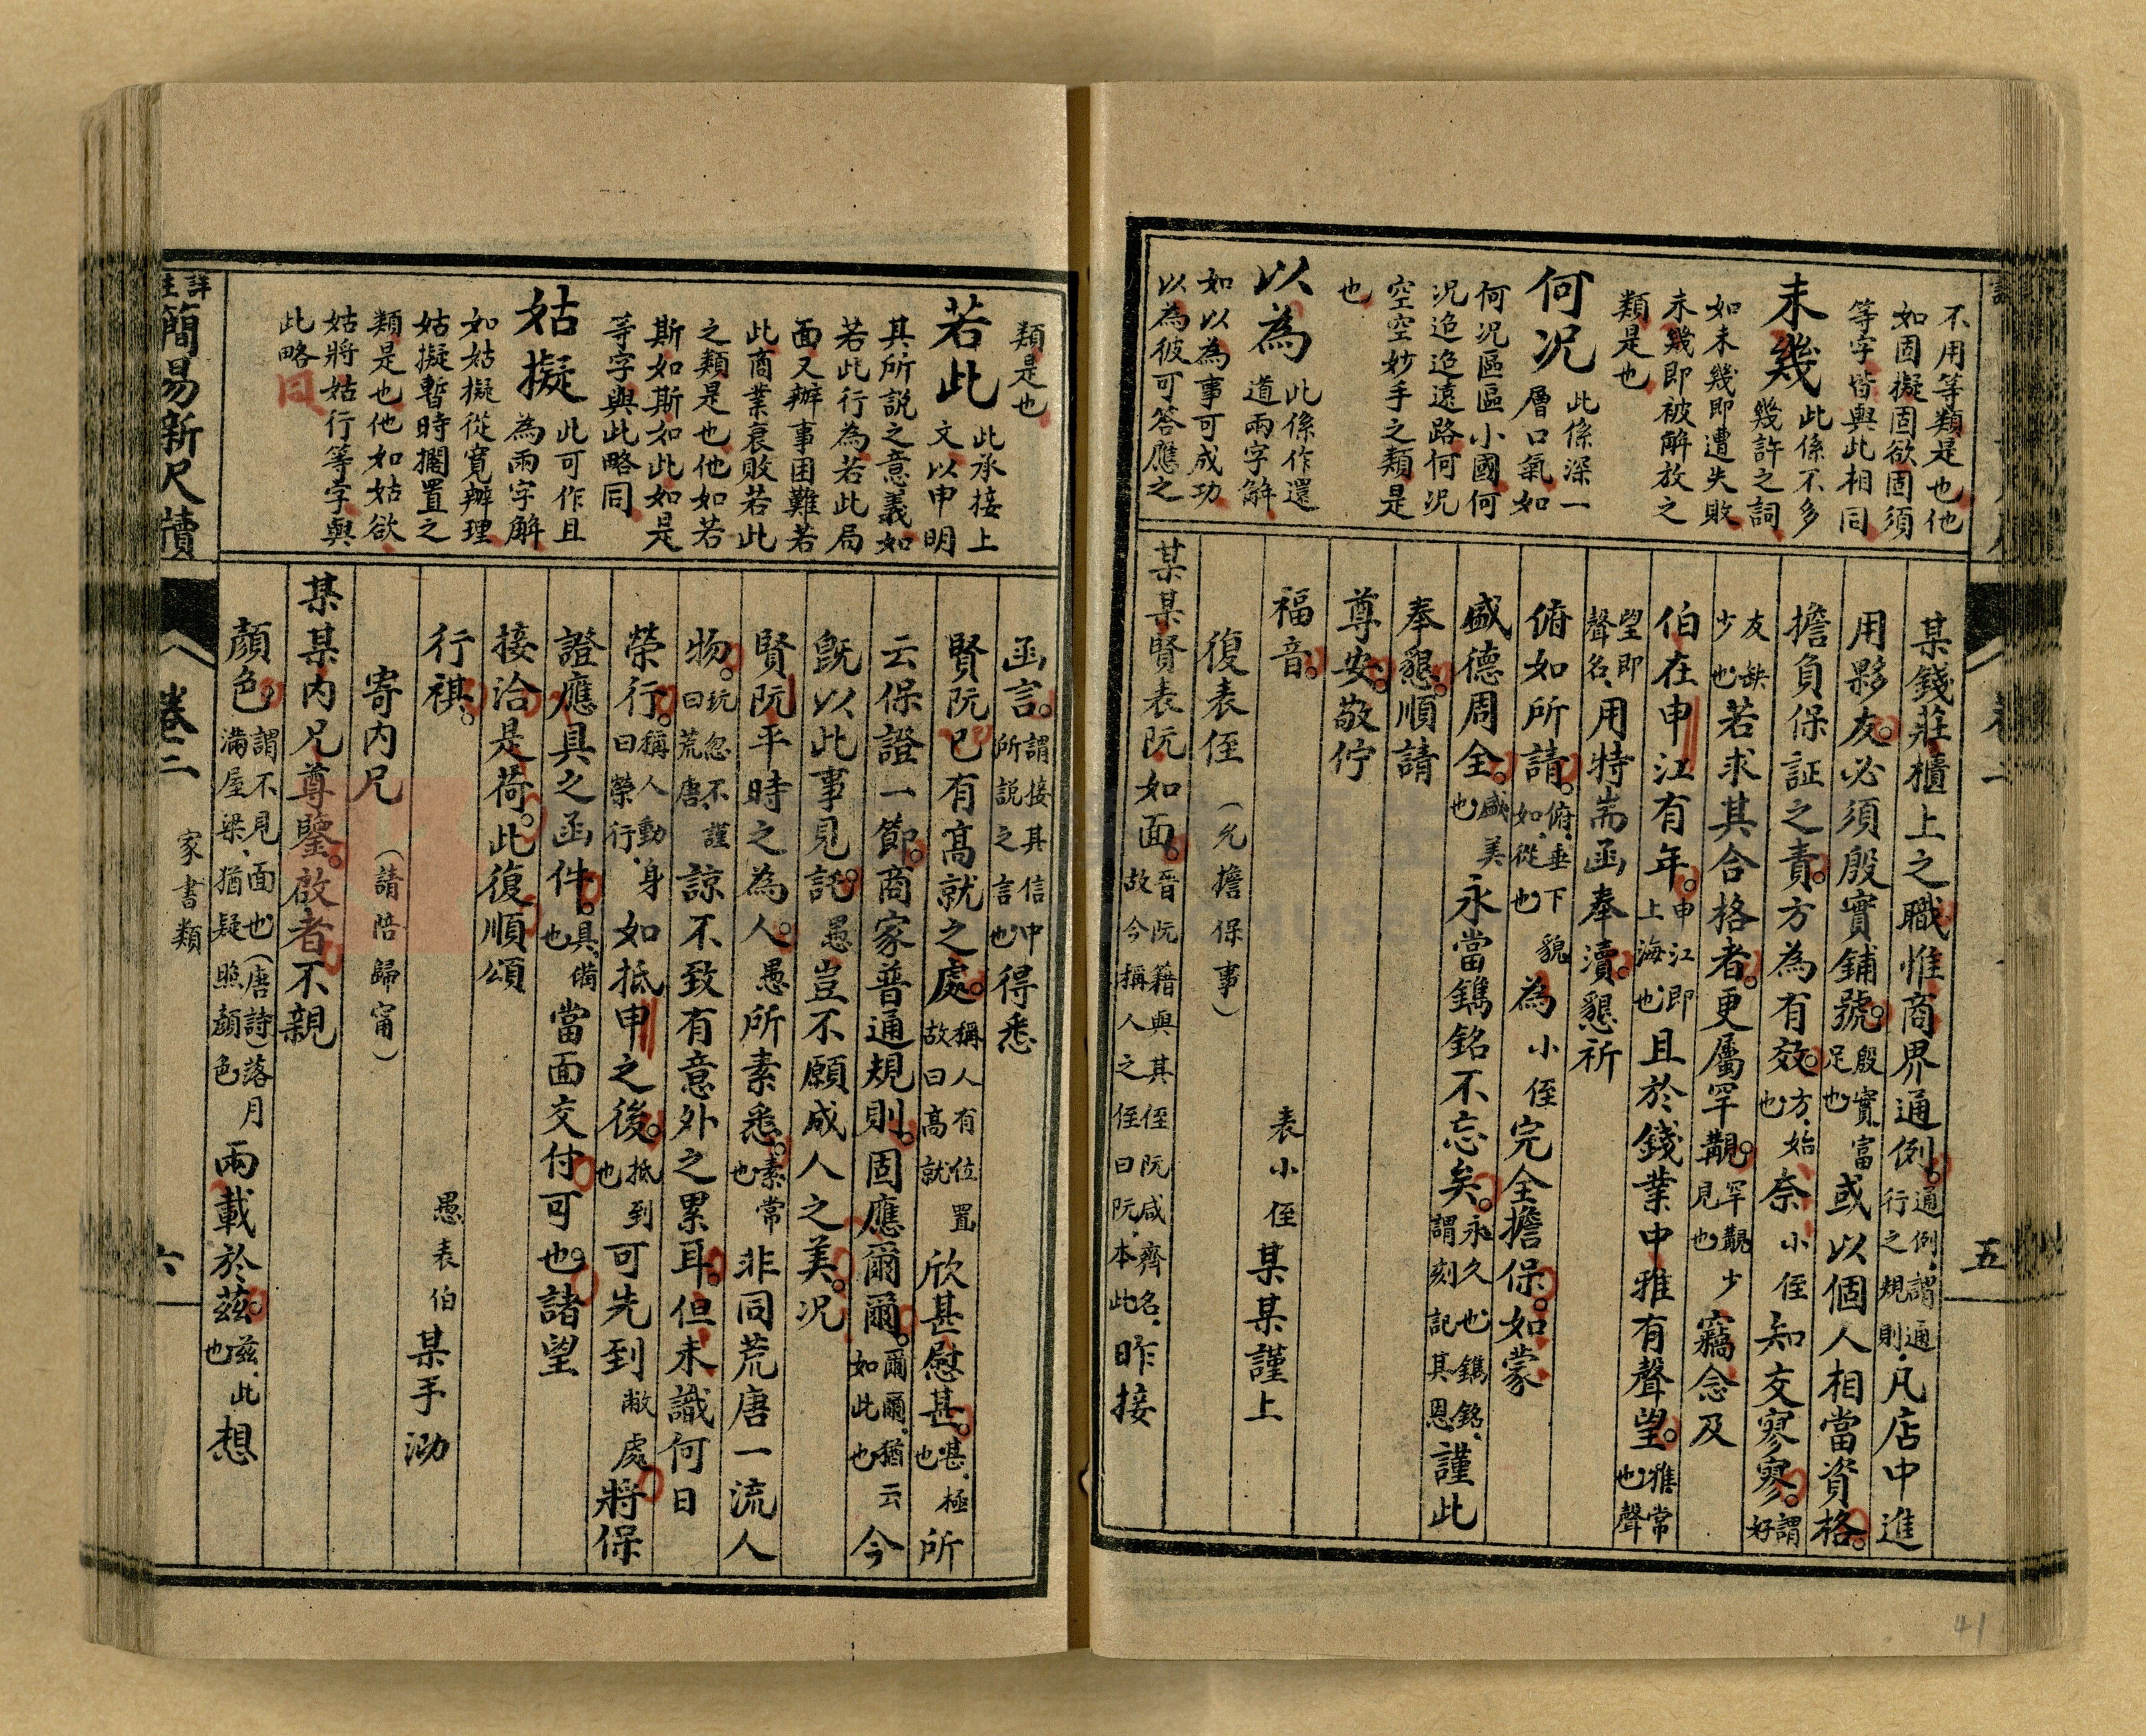 不用等類是也他
如固擬固欲固須
等字皆與此相同
未幾 此係不多
幾許之詞
如未幾即遭失敗
未幾即被解放之
類是也
何况 此係深一
層口氣如
何况區區小國何
况迢迢遠路何况
空空妙手之類是
也
以為 此係作還
道兩字解
如以為事可成功
以為彼可答應之
某錢莊櫃上之職惟商界通例。通例、謂通行之規則、凡店中進
用夥友。必須殷實鋪號。殷實、富足也或以個人相當資格。
擔負保証之責。方為有效。方、始也奈小侄知交寥寥。謂好
友缺少也若求其合格者。更屬罕覯。罕覯、少見也竊念及
伯在申江有年。申江、即上海也且於錢業中雅有聲望。雅、常也聲
望、即聲名、用特耑函奉瀆。懇祈
俯如所請。俯、垂下貌如、從也為小侄完全擔保。如蒙
盛德周全。盛、美也永當鐫銘不忘矣。永、久也鐫銘、謂刻記其恩謹此
奉懇。順請
尊安。敬佇
福音。 表小侄某某謹上
復表侄（允擔保事）
某某賢表阮如面。晉阮籍與其侄阮咸齊名、故今稱人之侄曰阮、本此昨接
卷二
五
41
類是也
若此 此承接上
文以申明
其所説之意義如
若此行為若此局
面又辦事困難若
此商業衰敗若此
之類是也他如若
斯如斯如此如是
等字與此略同
姑擬 此可作且
為兩字解
如姑擬從寬辦理
姑擬暫時擱置之
類是也他如姑欲
姑將姑行等字與
此略同
函言。謂接其信中所説之言也得悉
賢阮已有高就之處。稱人有位置故曰高就欣甚慰甚。甚、極也所
云保證一節。商家普通規則。固應爾爾。爾爾、猶云如此也今
既以此事見託。愚豈不願成人之美。况
賢阮平時之為人。愚所素悉。素、常也非同荒唐一流人
物。玩忽不謹曰荒唐、諒不致有意外之累耳。但未識何日
榮行。稱人動身曰榮行、如抵申之後。抵、到也可先到敝處。將保
證應具之函件。具、備也當面交付可也。諸望
接洽是荷。此復順頌
行祺。 愚表伯某手泐
寄内兄（請陪歸甯）
某某内兄尊鑒。啟者不親
顔色。謂不見面也（唐詩）落月滿屋梁、猶疑照顔色兩載於茲。茲、此也想
詳註簡易新尺牘
卷二
家書類
六